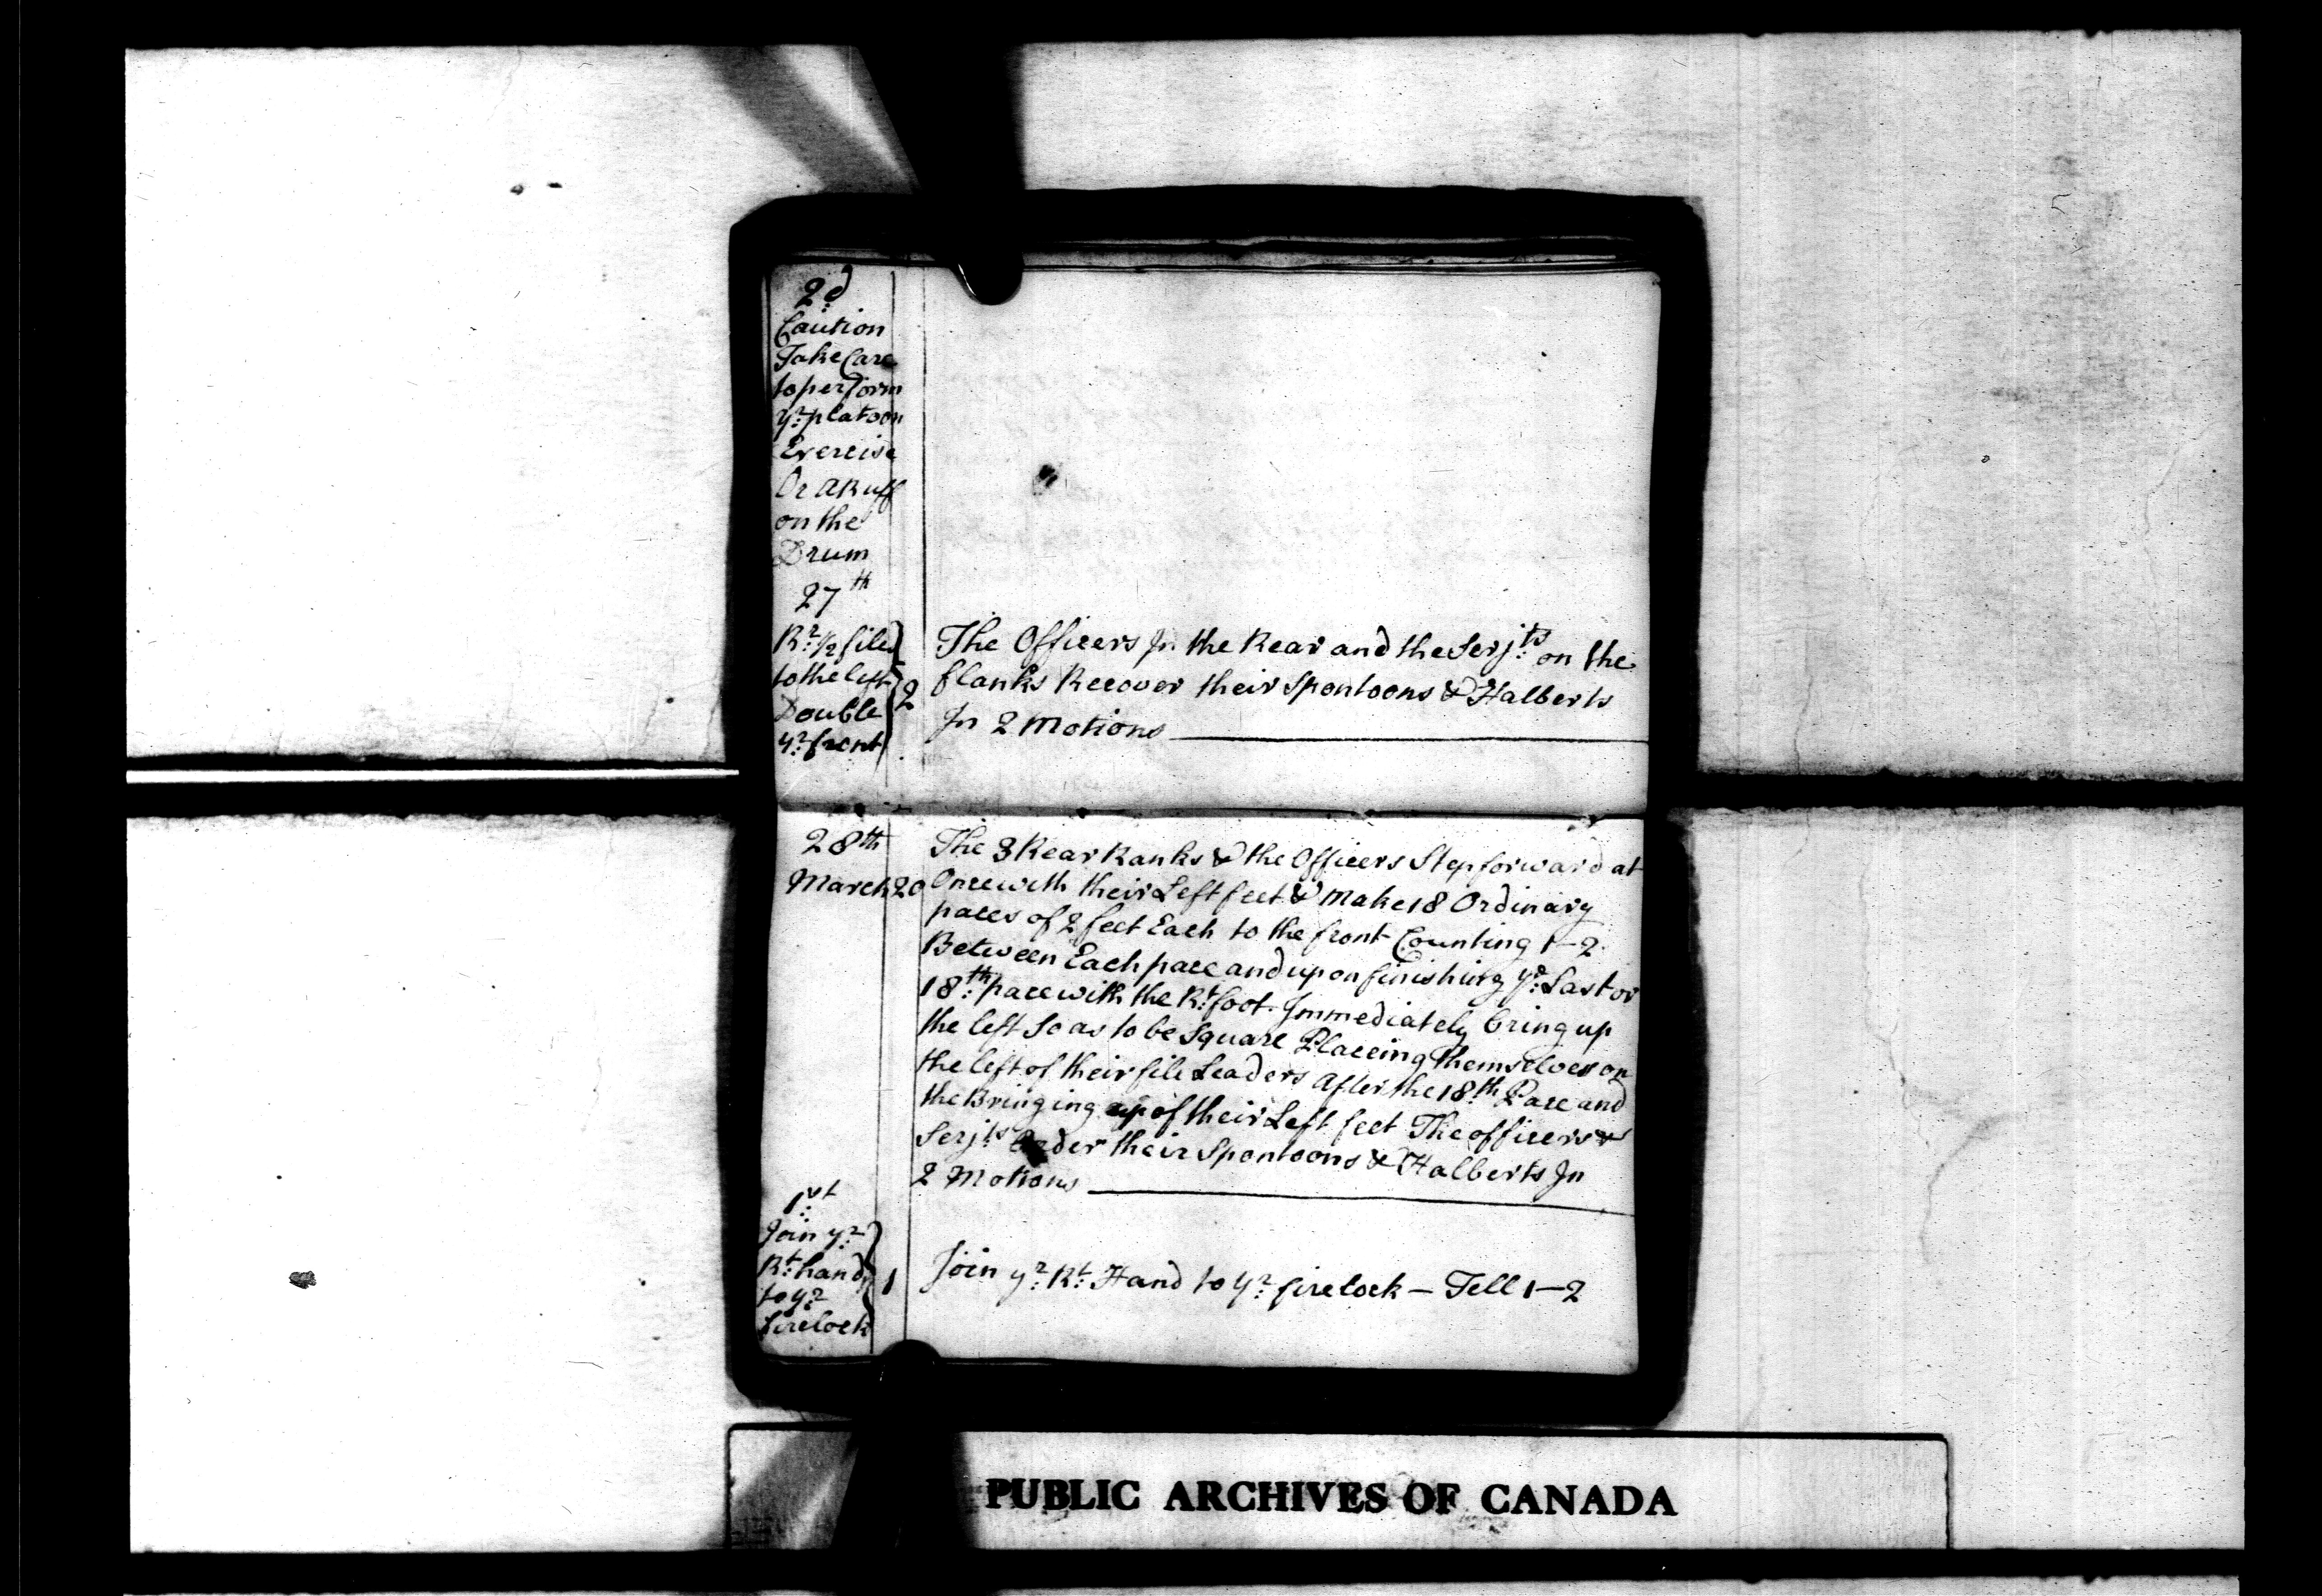 2d
Caution
Take Care
to perform
yr platoon
Exercise
Or a Ruff
on the
Drum
27th
Rr 1/2 files
to the left
Double
yr front
2
The Officers In the Rear and the Serjts on the
flanks Recover their Spontoons & Halberts
In 2 Motions
28th
March 20
The 3 Rear Ranks & the Officers Step forward at
Once with their Left feet & make 18 Ordinary
paces of 2 feet Each to the front Counting 1-2
Between Each pace and upon finishing ye Last or
18th pace with the Rt foot Immediately bring up
the left So as to be Square Placeing themselves on
the left of their file Leaders After the 18th Pace and
the Bringing up of their Left feet The officers &
Serjts Order their Spontoons & Halberts In
2 Motions
1st
Join yr
Rt hand
to yr
firelock
1
Join yr Rt Hand to yr firelock - Tell 1-2
PUBLIC ARCHIVES OF CANADA